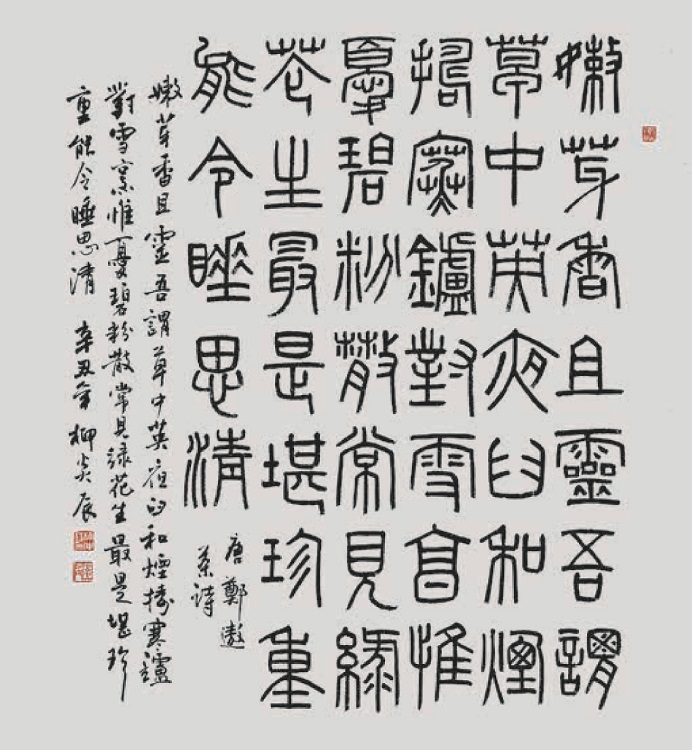 嫩芽香且靈吾謂
草中英夜臼和煙
搗寒鑪對雪烹惟
憂碧粉散常見綠
花生最是堪珍重
能令睡思清
唐鄭遨
茶詩
嫩芽香且靈吾謂草中英夜臼和煙搗寒鑪
對雪烹惟憂碧粉散常見綠花生最是堪珍
重能令睡思清 辛丑年 柳炎辰